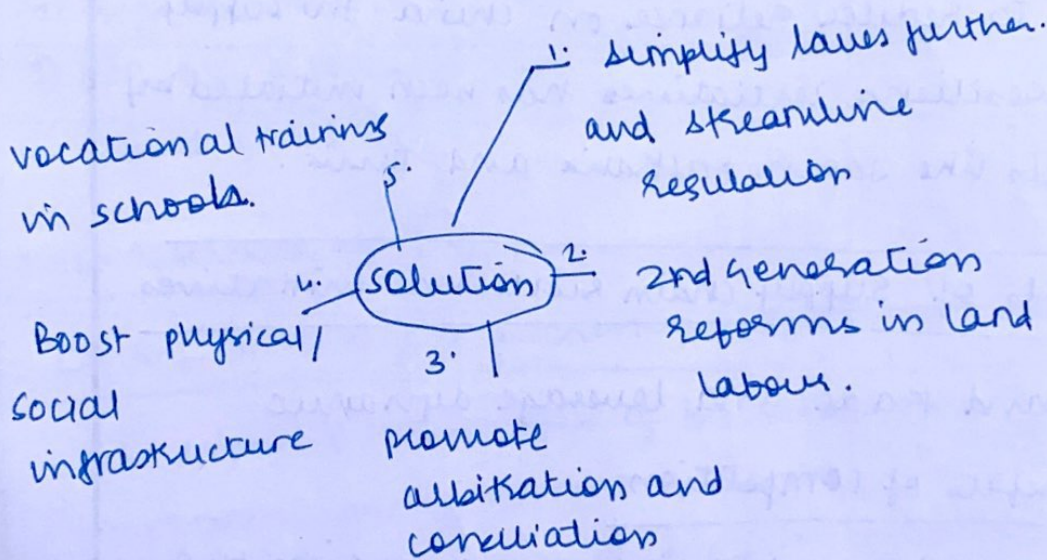 1. simplify laws further.
and streamline
regulation
2. 2nd generation
reforms in land
labour.
3. promote
arbitration and
conciliation
4. Boost physical/
social
infrastructure
5. vocational training
in schools.
solution